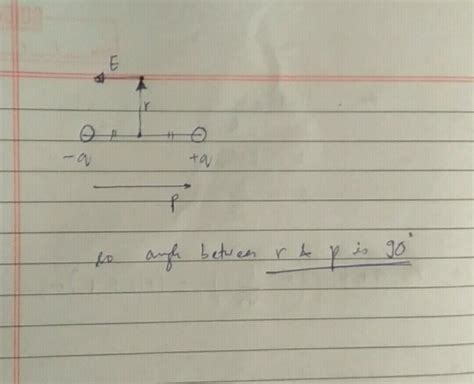 E
r
-q +q
p
so angle between r & p is 90°